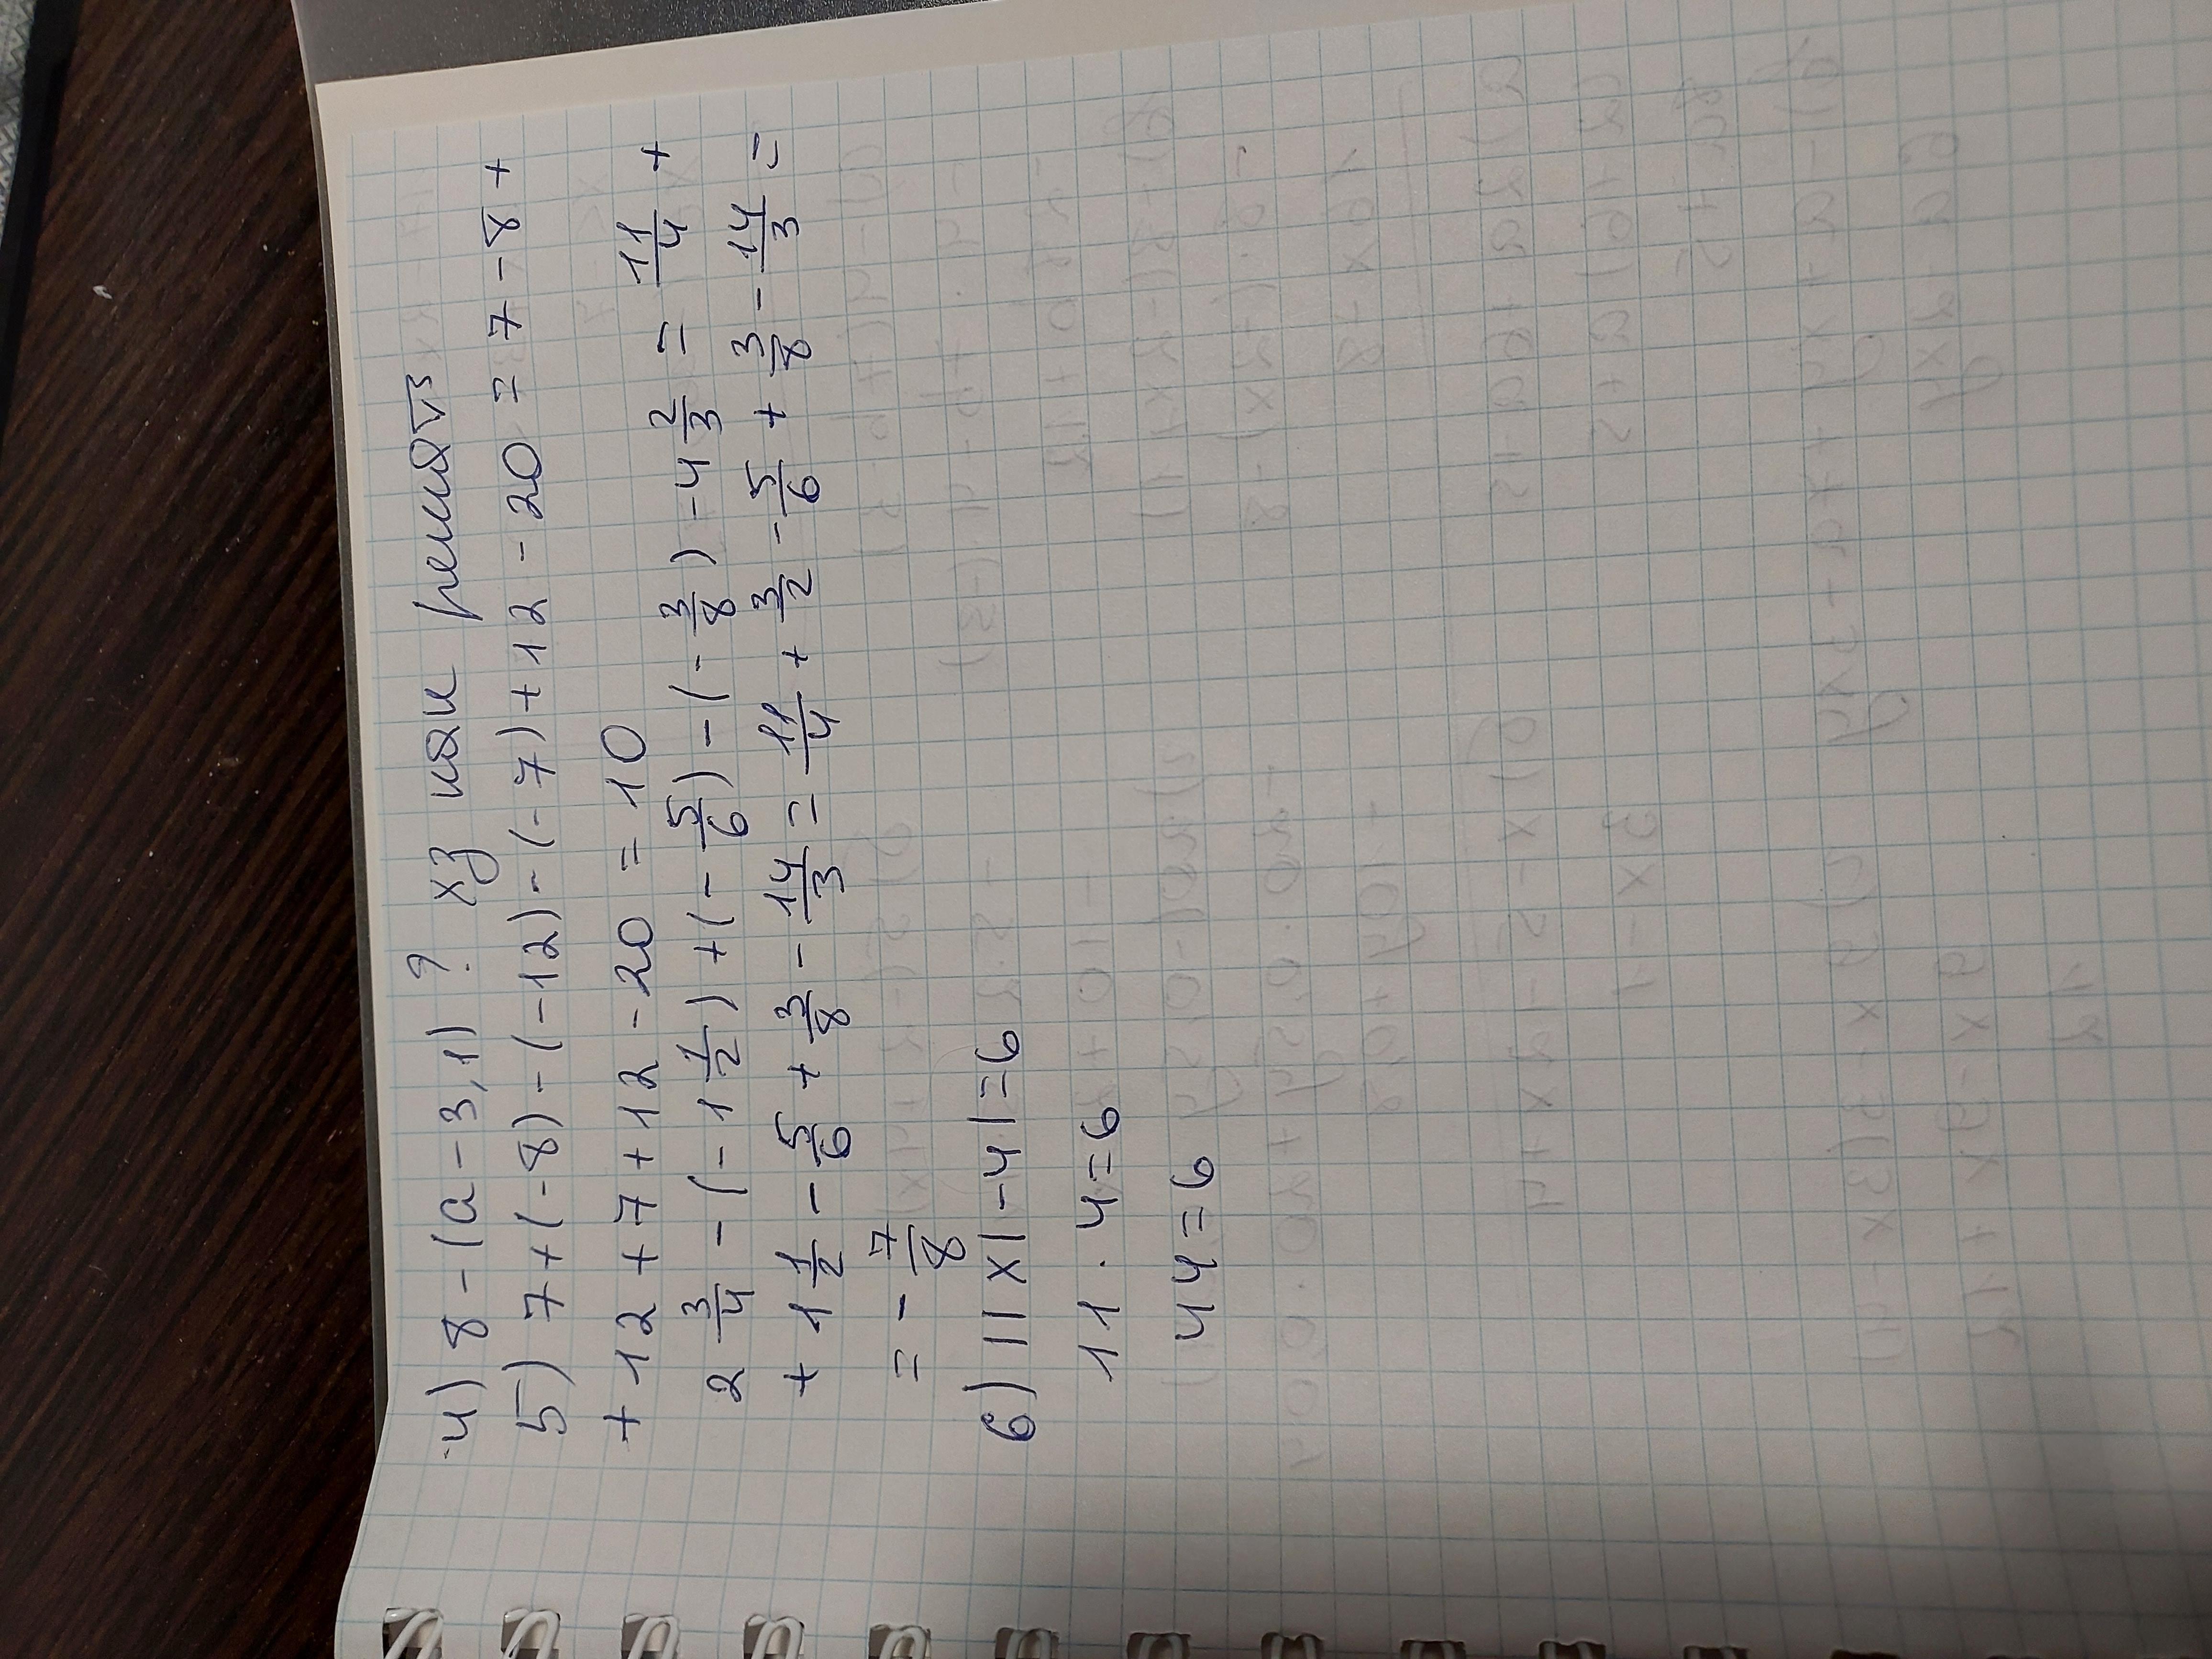 4) 8 - (a - 3,1) ? хз как решать
5) 7 + (-8) - (-12) - (-7) + 12 - 20 = 7 - 8 +
+ 12 + 7 + 12 - 20 = 10
2 3/4 - (-1 1/2) + (- 5/6) - (- 3/8) - 4 2/3 = 11/4 +
+ 1 1/2 - 5/6 + 3/8 - 14/3 = 11/4 + 3/2 - 5/6 + 3/8 - 14/3 =
= - 7/8
6) ||x| - 4| = 6
11 · 4 = 6
44 = 6